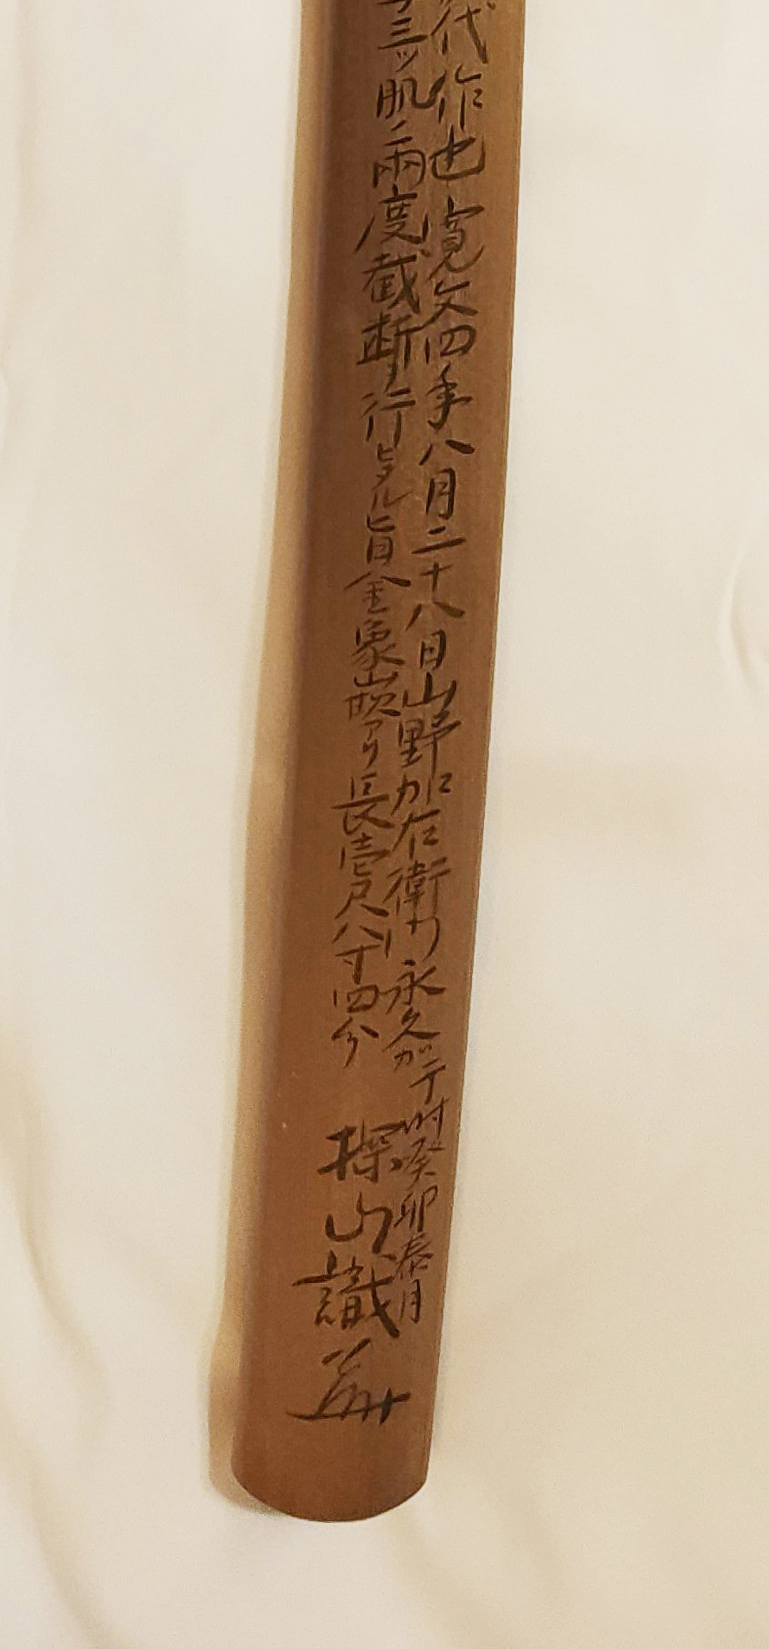 代作也寛文四年八月二十八日山野加右衛門永久ガテ
三ツ胴ニ両度截断ヲ行ヒタル旨金象嵌アリ長壱尺八寸四分
時癸卯春月
探山識